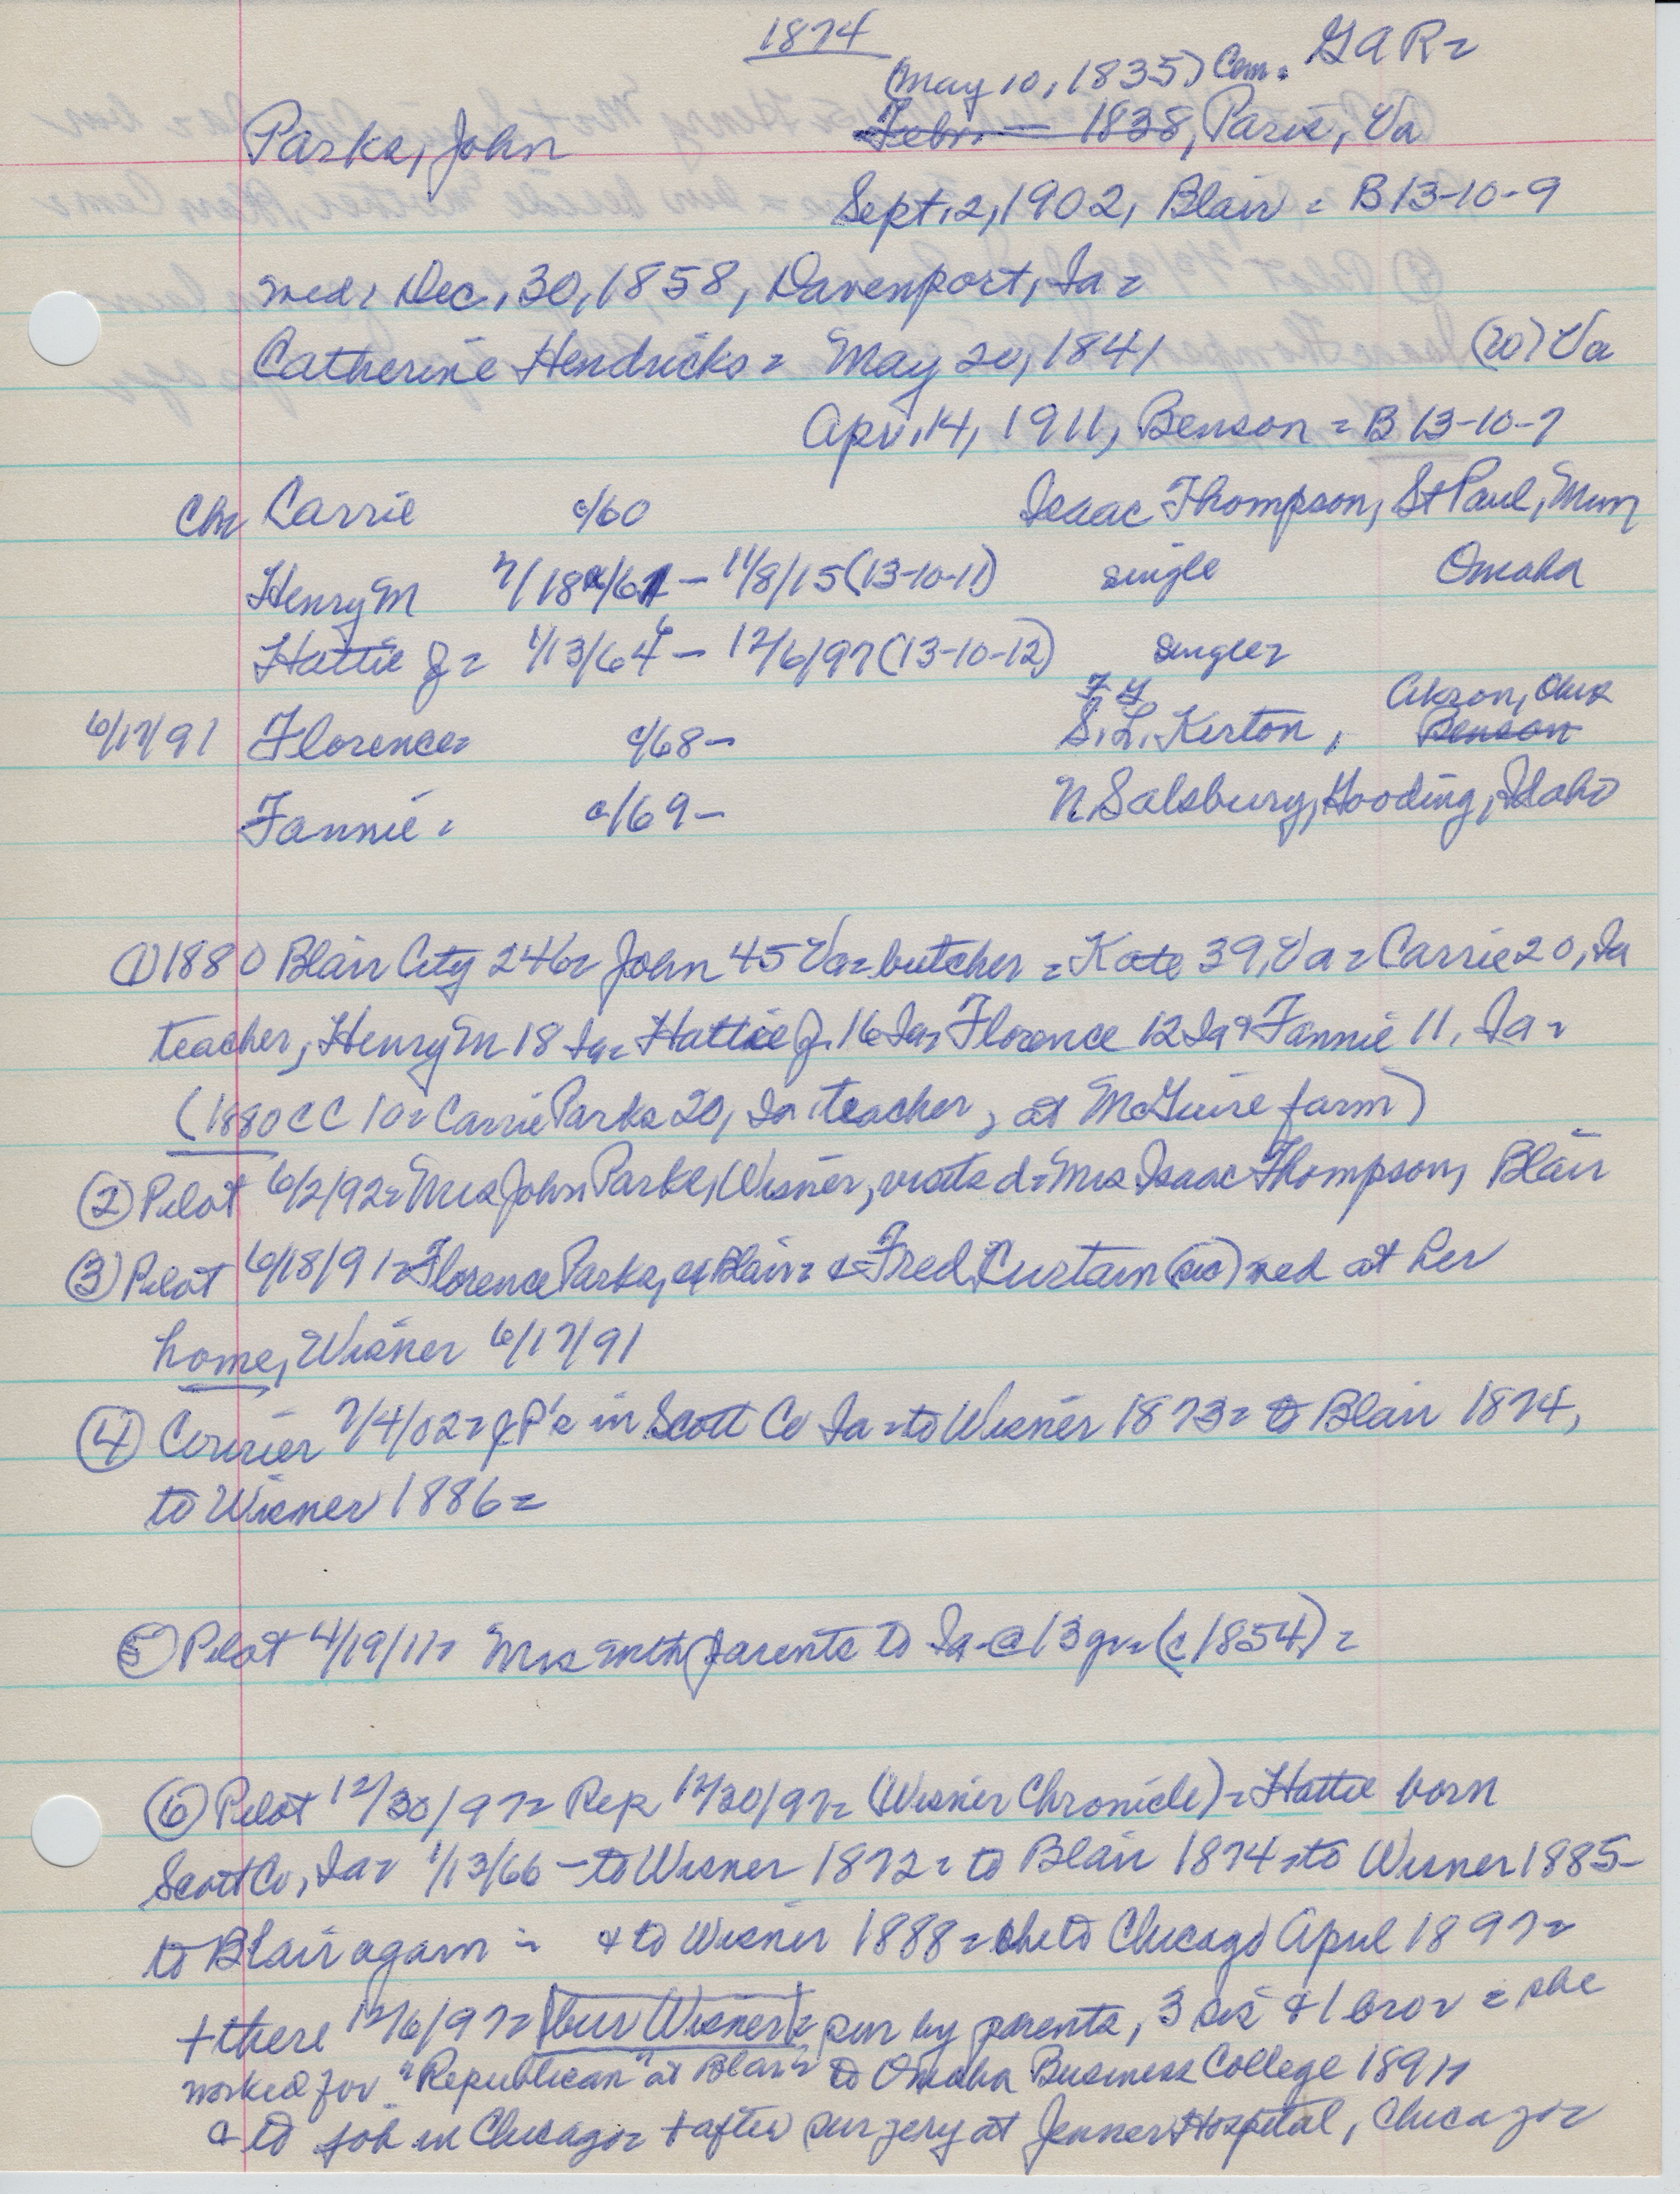 1874
(May 10, 1835) Cem. GAR=
Febr. — 1838, Paris, Va
Parks, John
Sept. 2, 1902, Blair = B 13-10-9
med: Dec. 30, 1858, Davenport, Ia =
Catherine Hendricks = May 20, 1841 (20) Va
Apr. 14, 1911, Benson = B 13-10-7
Chn Carrie c/60 Isaac Thompson, St Paul, Minn
Henry M 7/18/61 - 11/8/15 (13-10-11) single Omaha
Hattie J = 1/13/64 6 - 12/6/97 (13-10-12) single=
F Y Akron, Ohio
6/17/91 Florence= c/68- S. L. Kerton, Benson
Fannie = c/69- N Salsbury, Gooding, Idaho
(1) 1880 Blair City 246= John 45 Va= butcher = Kate 39, Va = Carrie 20, Ia
teacher, Henry M 18 Ia= Hattie J. 16 Ia= Florence 12 Ia & Fannie 11, Ia =
(1880 CC 10= Carrie Parks 20, Ia teacher, at McGuire farm)
(2) Pilot 6/2/92= Mrs John Parks, Wisner, visits d= Mrs Isaac Thompson, Blair
(3) Pilot 6/18/91= Florence Parks, of Blair= & Fred Curtain (sic) med at her
home, Wisner 6/17/91
(4) Courier 7/4/02= JP's in Scott Co Ia = to Wisner 1873= to Blair 1874,
to Wisner 1886=
(5) Pilot 4/19/11= Mrs with parents to Ia @ 13 yr= (c 1854) =
(6) Pilot 12/30/97= Rep 12/30/97= (Wisner Chronicle) = Hattie born
Scott Co, Ia= 1/13/66 - to Wisner 1872= to Blair 1874= to Wisner 1885-
to Blair again = & to Wisner 1888= she to Chicago April 1897=
+ there 12/6/97= bur Wisner = sur by parents, 3 sis & 1 bro= = she
worked for "Republican" at Blair= to Omaha Business College 1891=
& to job in Chicago= + after surgery at Jenner Hospital, Chicago=